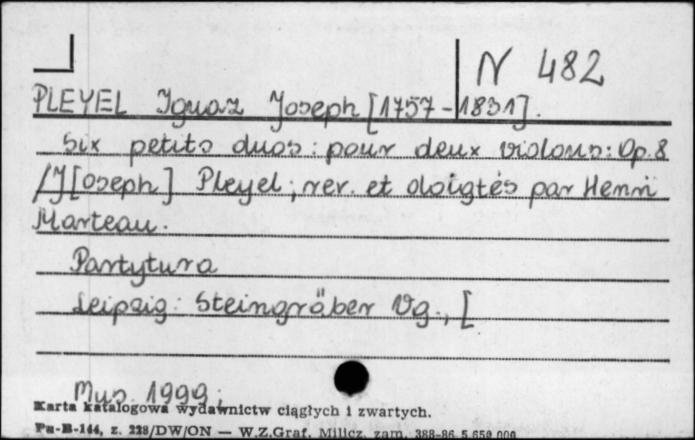 N 482
PLEYEL Ignaz Joseph [1757-1831].
Six petits duos: pour deux violons: Op. 8
/J[oseph] Pleyel; rev. et doigtés par Henri
Marteau.
Partytura
Leipzig: Steingräber Vg., [
Mus. 1999;
Karta katalogowa wydawnictw ciągłych i zwartych.
Pu-B-144, z. 228/DW/ON — W.Z.Graf. Milicz, zam. 388-86 5.650.000